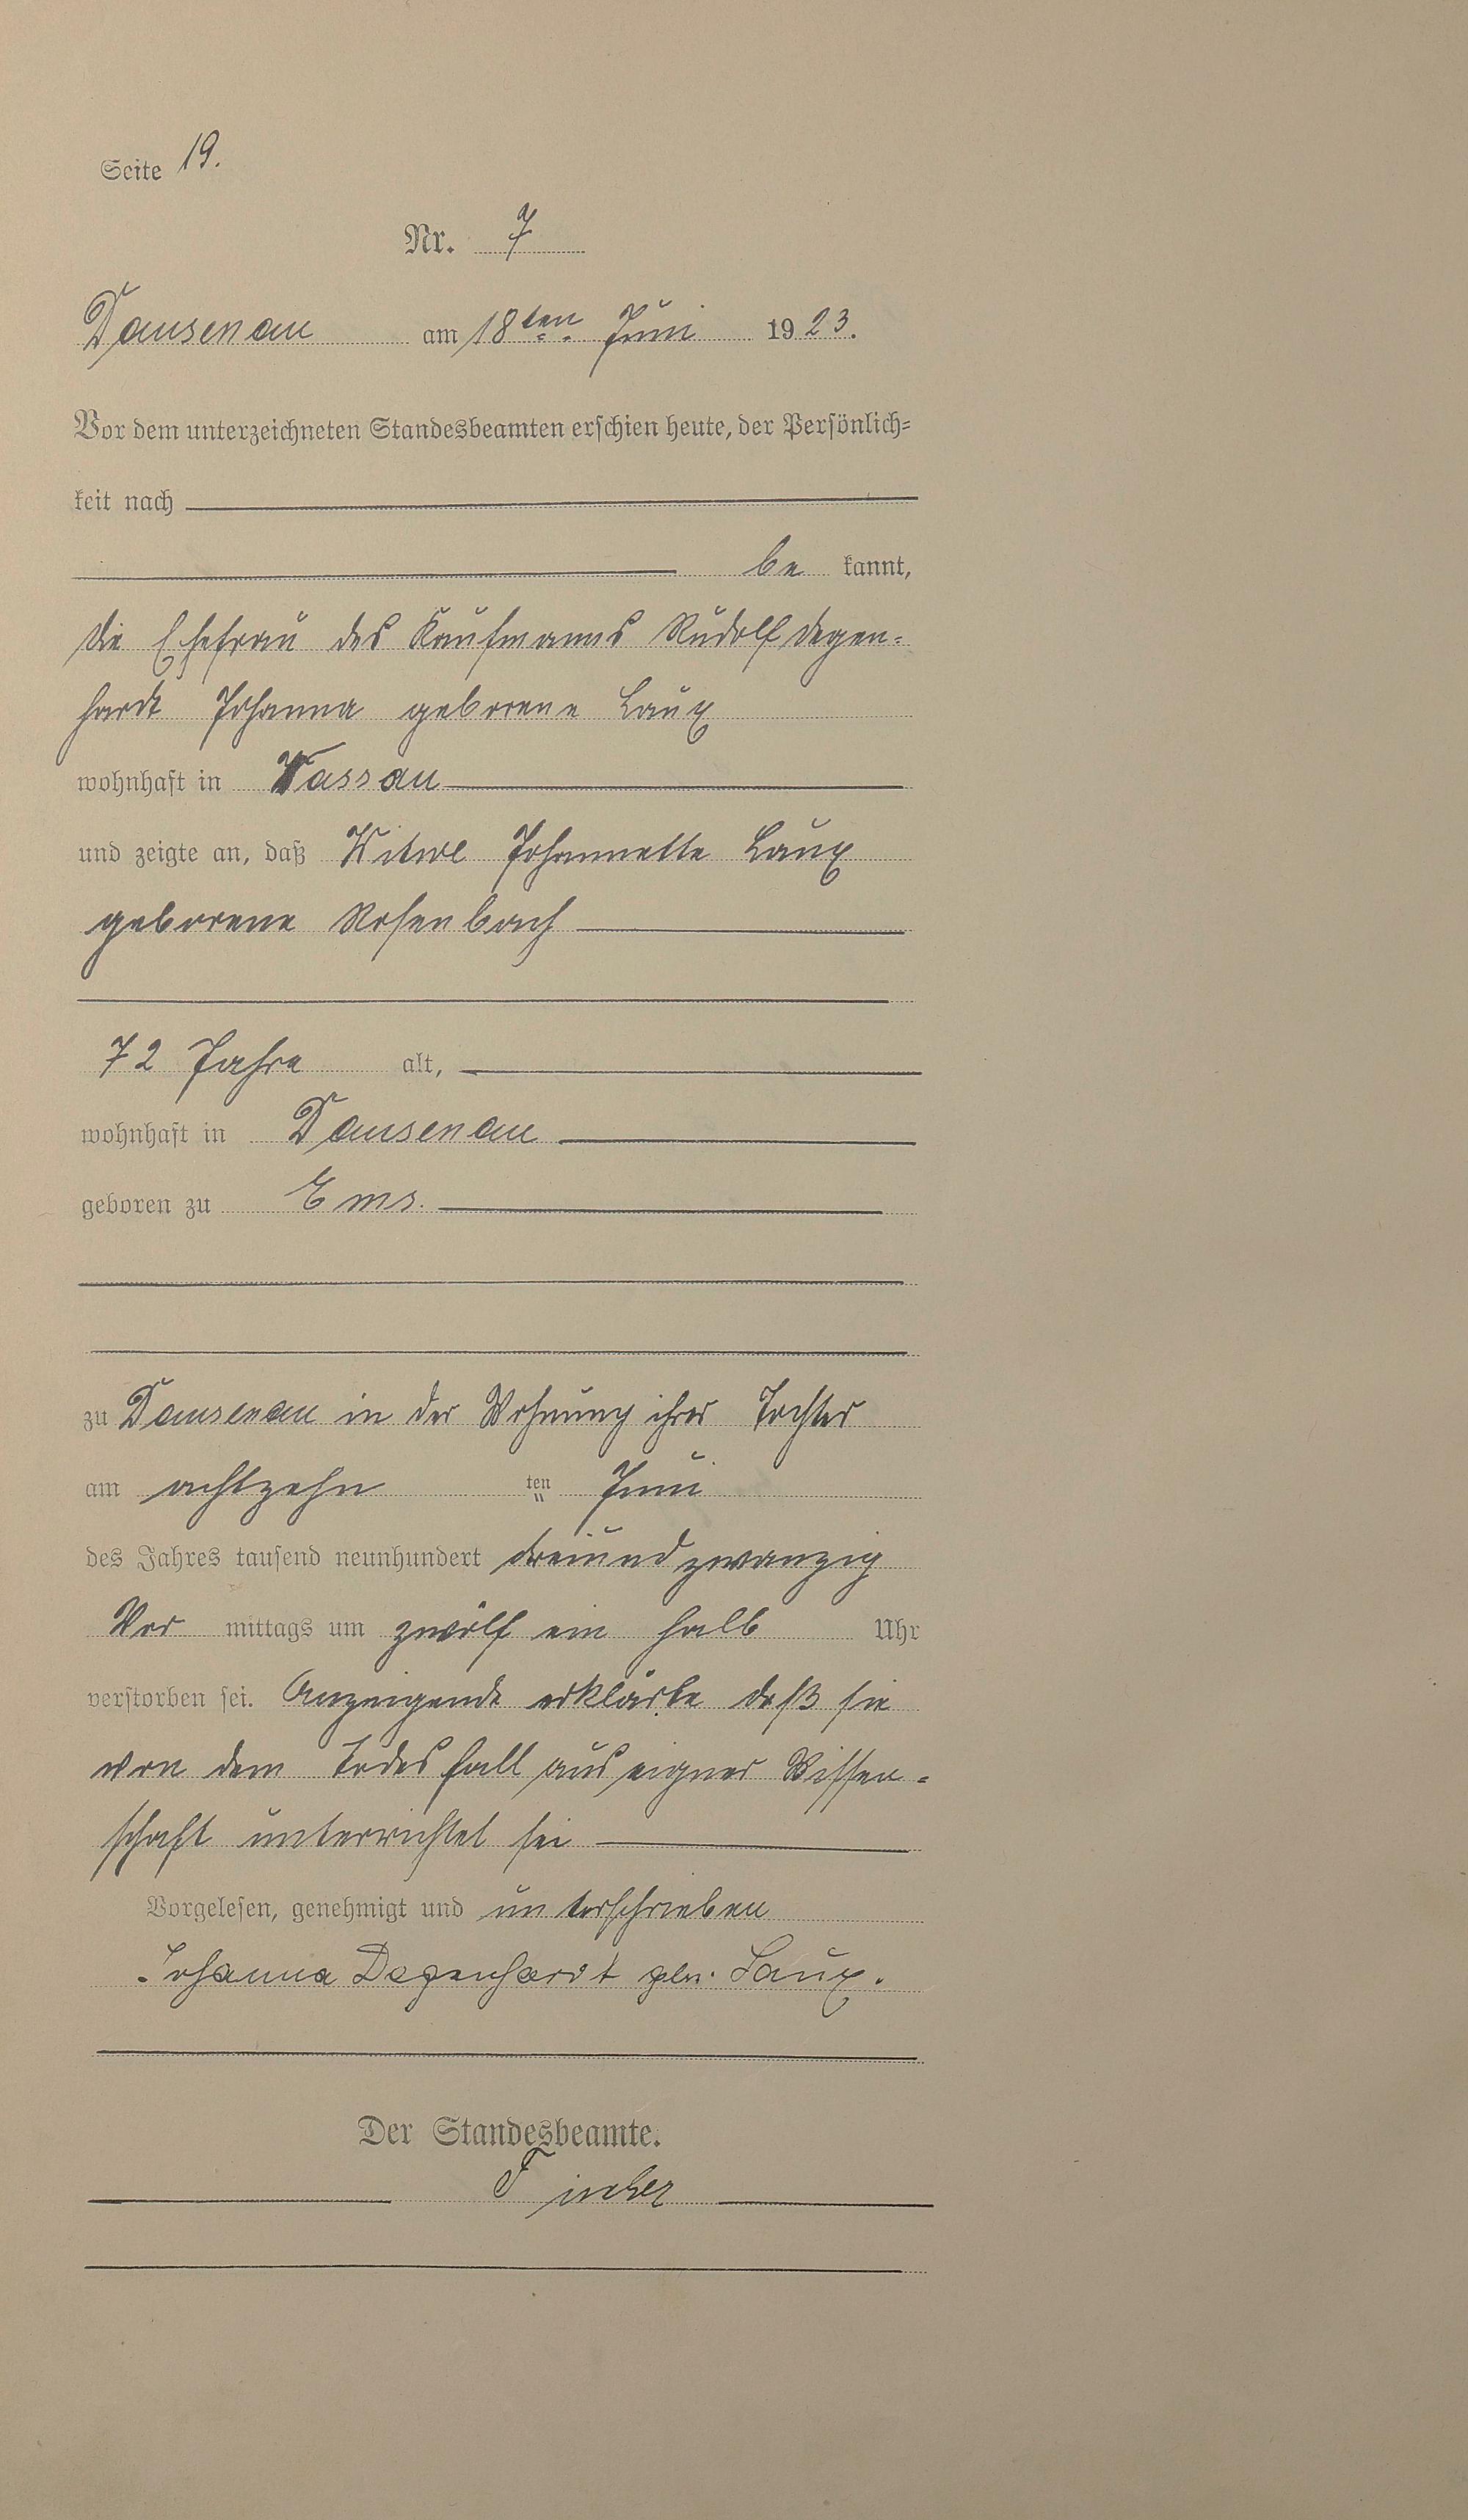 Seite 19.
Nr. 7
Dausenau am 18ten Juni 1923.
Vor dem unterzeichneten Standesbeamten erschien heute, der Persönlich=
keit nach
be kannt,
die Ehefrau des Kaufmanns Rudolf Degen=
hardt Johanna geborene Laux
wohnhaft in Nassau
und zeigte an, daß Witwe Johannette Laux
geborene Rosenbach
72 Jahre alt,
wohnhaft in Dausenau
geboren zu Ems.
zu Dausenau in der Wohnung ihrer Tochter
am achtzehn ten Juni
des Jahres tausend neunhundert dreiundzwanzig
Vor mittags um zwölf ein halb Uhr
verstorben sei. Anzeigende erklärte daß sie
von dem Todesfall aus eigner Wissen=
schaft unterrichtet sei
Vorgelesen, genehmigt und unterschrieben
Johanna Degenhardt geb. Laux.
Der Standesbeamte.